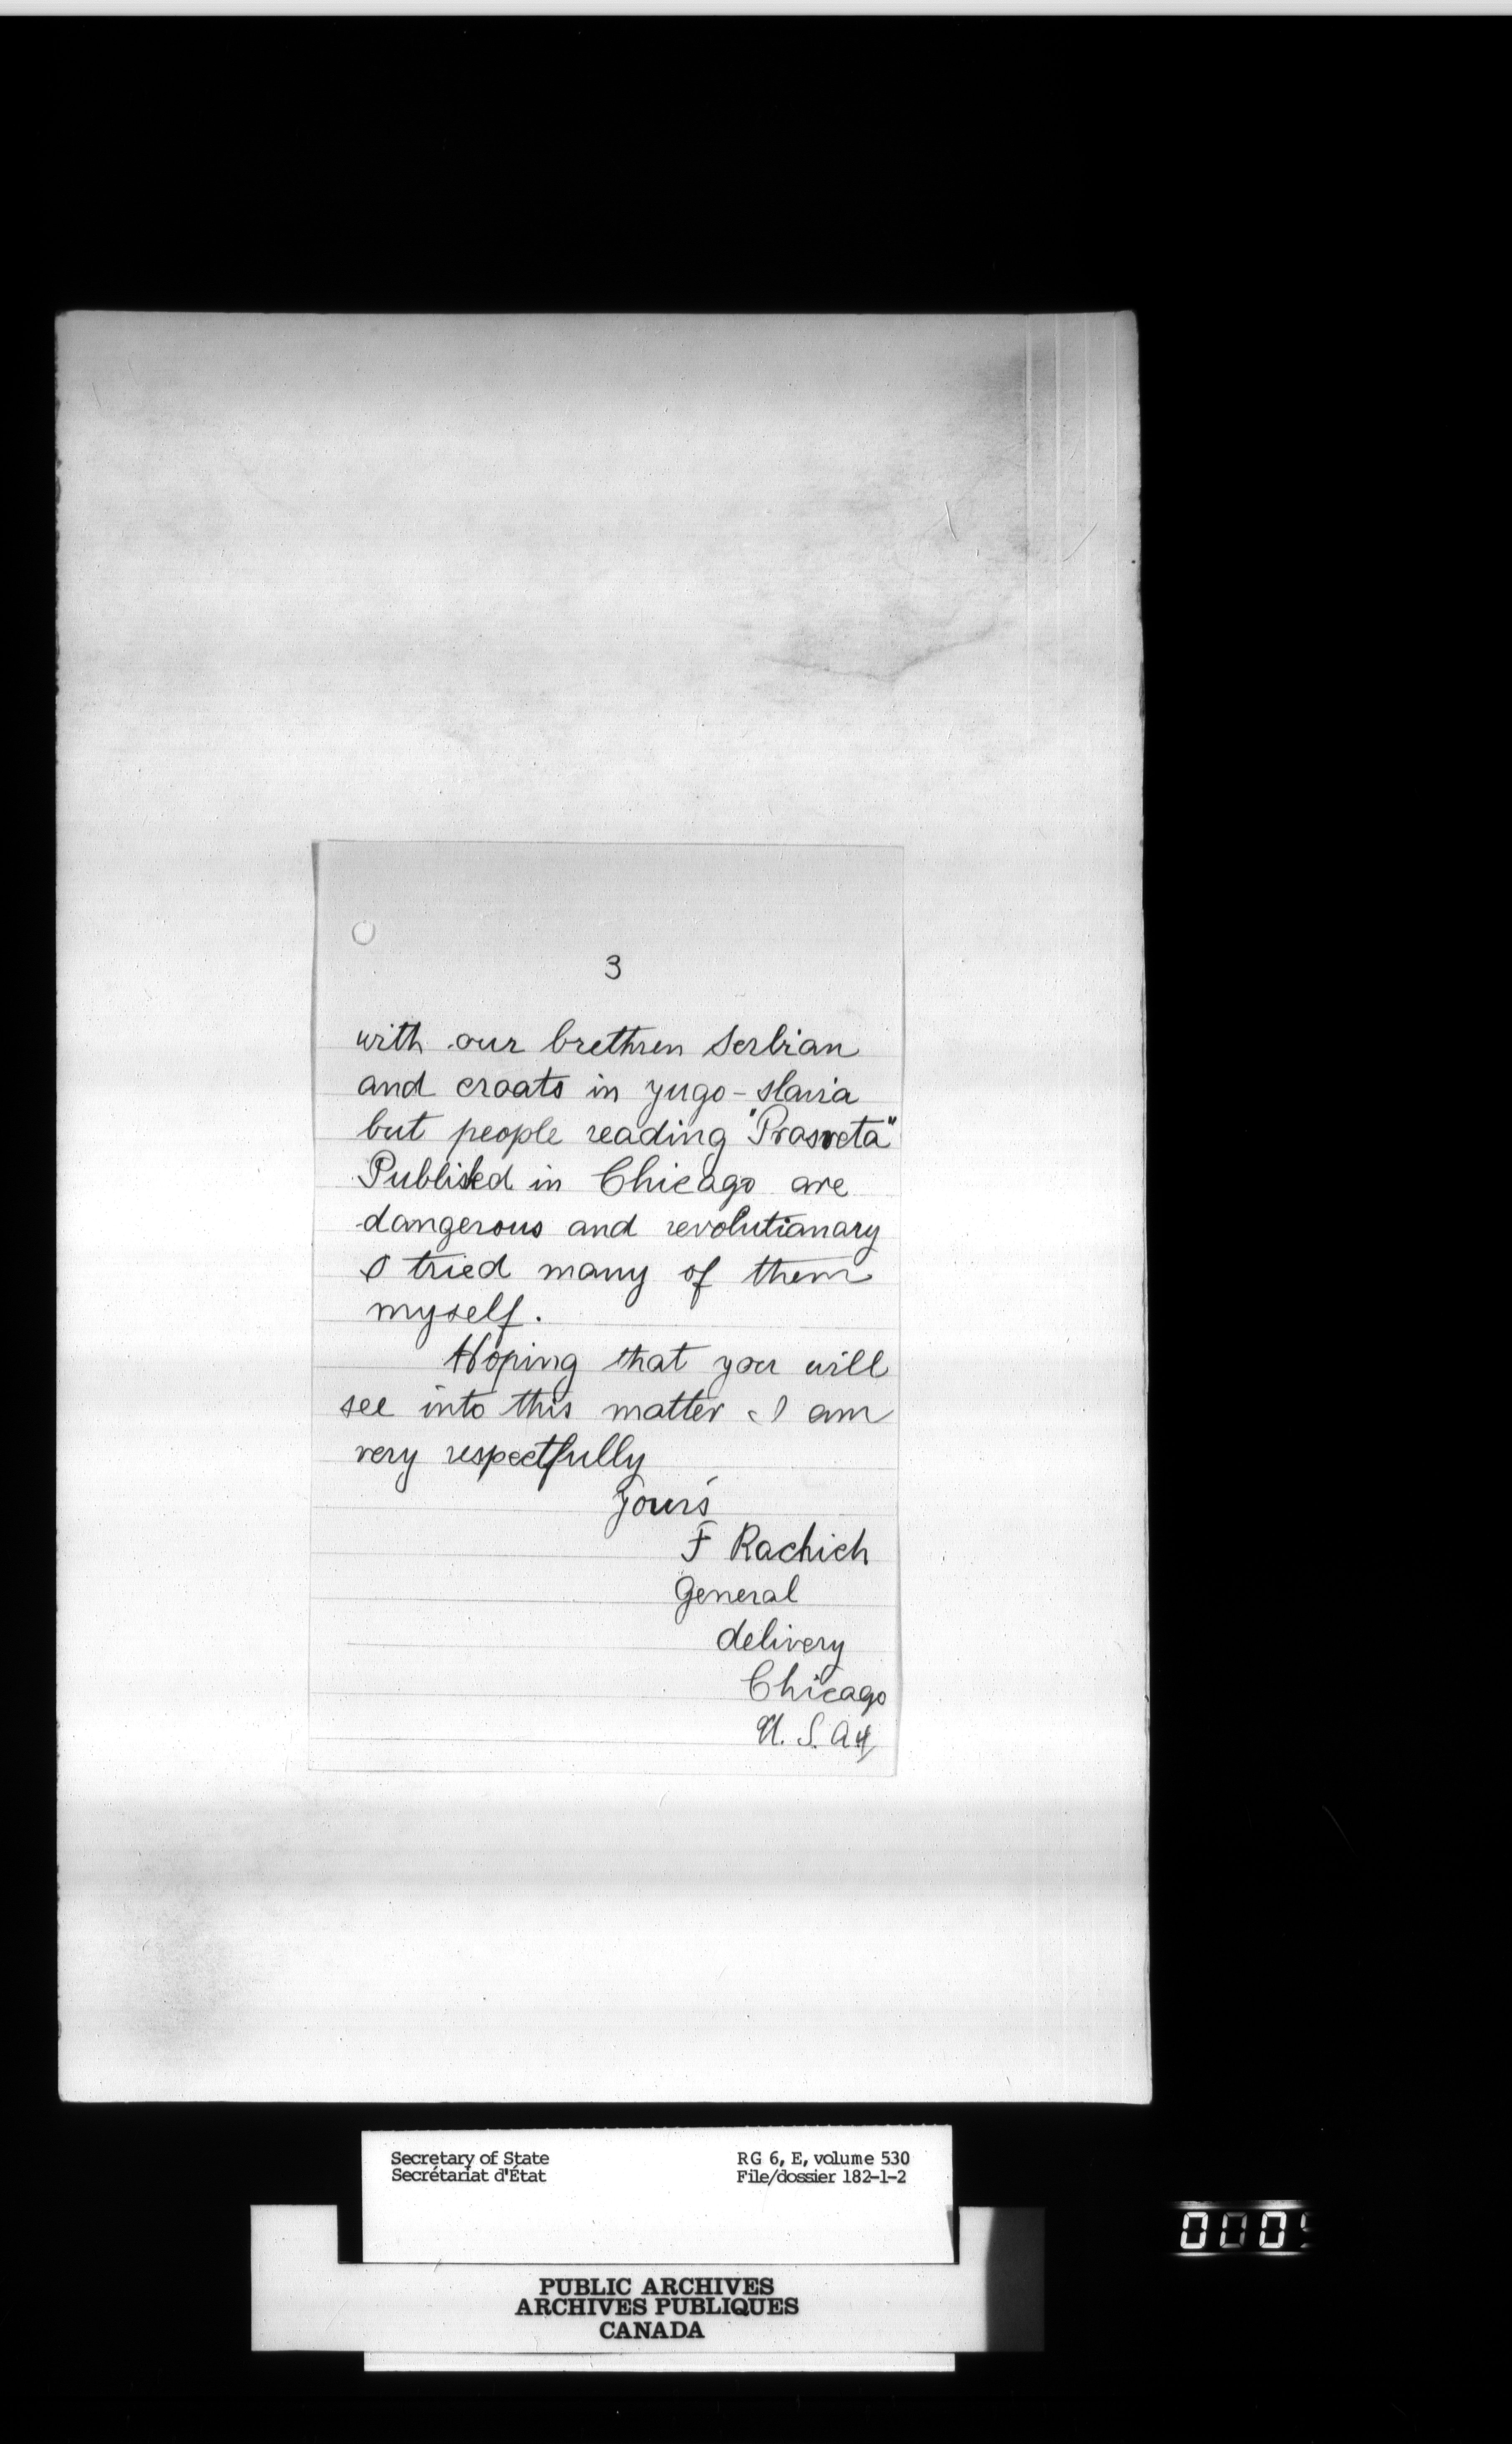 3
with our brethren Serbian
and croats in yugo-slavia
but people reading "Prosveta"
Published in Chicago are
dangerous and revolutionary
I tried many of them
myself.
Hoping that you will
see into this matter I am
very respectfully
Yours
F Rachich
General
delivery
Chicago
U. S. A
Secretary of State
Secrétariat d'État
RG 6, E, volume 530
File/dossier 182-1-2
PUBLIC ARCHIVES
ARCHIVES PUBLIQUES
CANADA
000